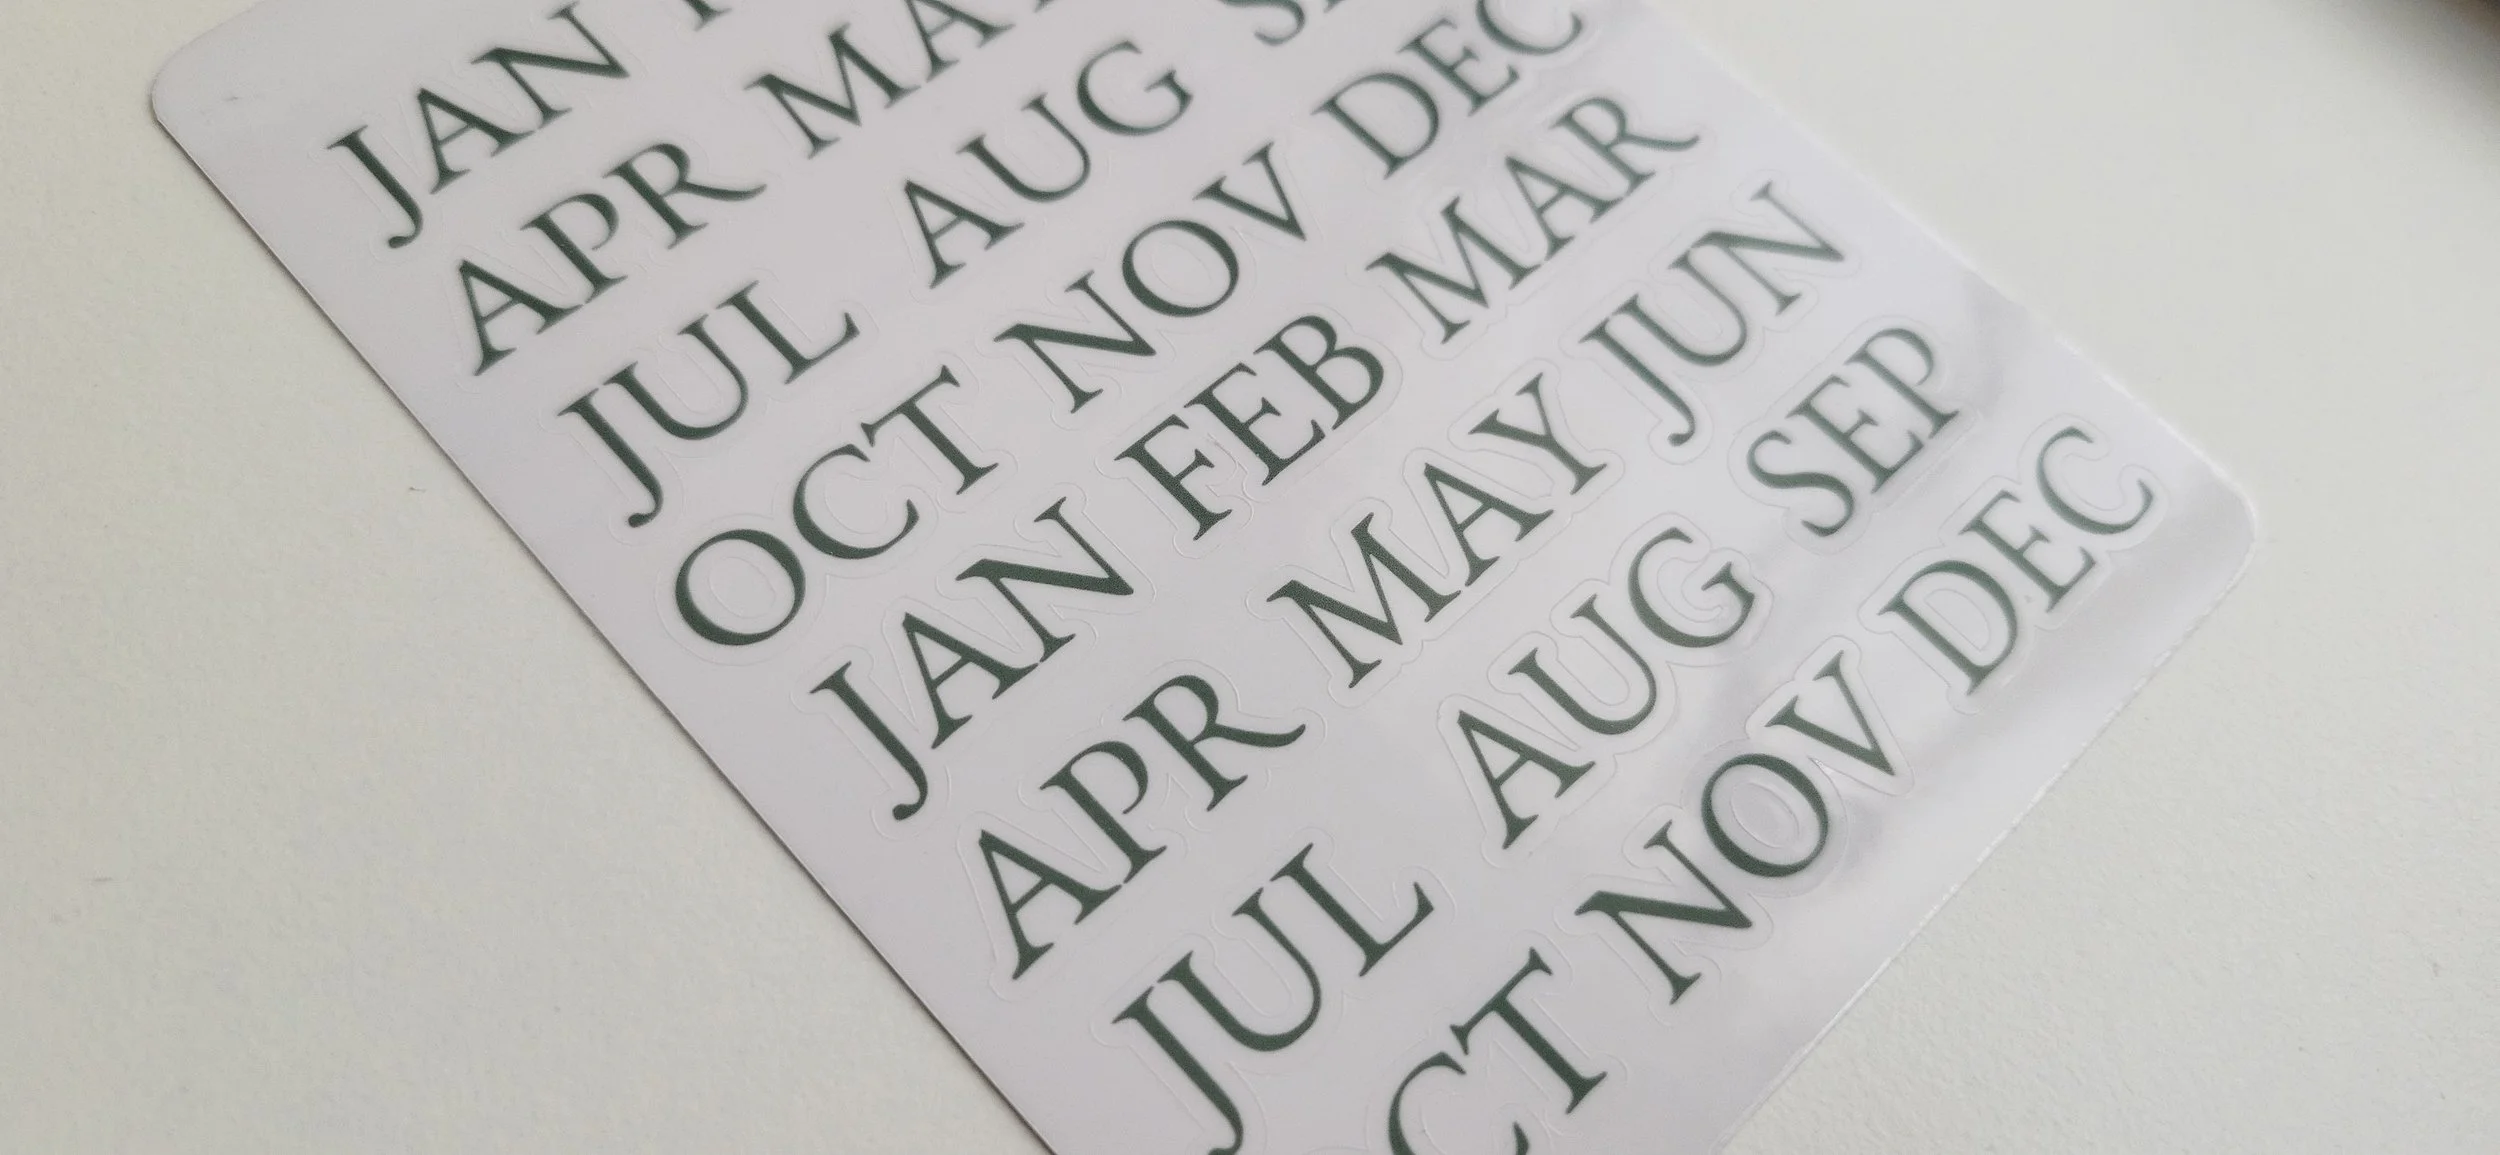 JAN
APR MA
JUL AUG
OCT NOV DEC
JAN FEB MAR
APR MAY JUN
JUL AUG SEP
CT NOV DEC